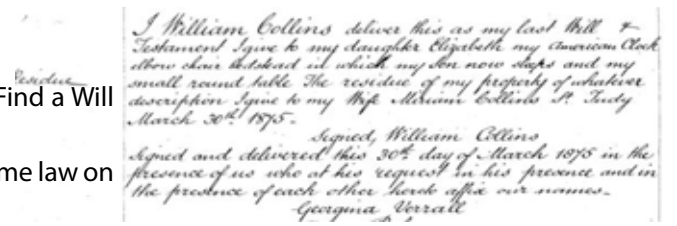 I William Collins deliver this as my last Will &
Testament I give to my daughter Elizabeth my American Clock
elbow chair bedstead in which my Son now sleeps and my
Residue
small round table The residue of my property of whatever
Find a Will
description I give to my Wife Miriam Collins St. Tudy
March 30th. 1875.-
Signed, William Collins
Signed and delivered this 30th. day of March 1875 in the
me law on
presence of us who at his request in his presence and in
the presence of each other hereto affix our names.-
Georgina Verrall